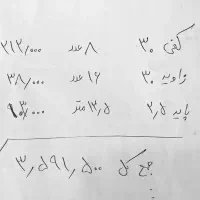 کفی ۳۰ ۸ عدد ۲۱۲/۰۰۰
زاویه ۳۰ ۱۶ عدد ۳۸/۰۰۰
پایه ۲٫۵ ۱۲٫۵ متر ۱۳۰/۰۰۰
جمع کل ۳٫۵۹۱٫۵۰۰